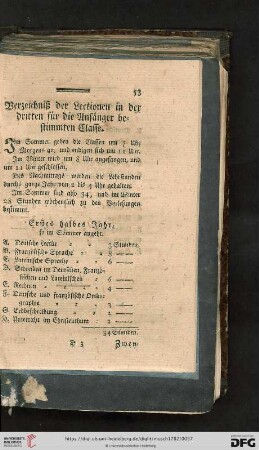 53
Verzeichniß der Lectionen in der
dritten für die Anfänger be-
stimmten Classe.
Im Sommer gehen die Classen um 7 Uhr
Morgens an, und endigen sich um 11 Uhr.
Im Winter wird um 8 Uhr angefangen, und
um 11 Uhr geschlossen.
Des Nachmittags werden die Lehrstunden
durchs ganze Jahr von 2 bis 4 Uhr gehalten.
Im Sommer sind also 34, und im Winter
28 Stunden wöchentlich zu den Vorlesungen
bestimmt.
Erstes halbes Jahr,
so im Sommer angeht.
A. Deutsche Lectür 3 Stunden.
B. Französische Sprache 8 —
C. Lateinische Sprache 6 —
D. Schreiben im Deutschen, Franzö-
sischen und Lateinischen 6 —
E. Rechnen 4 —
F. Deutsche und französische Ortho-
graphie
G. Erdbeschreibung 2 —
H. Unterricht im Christenthum 2 —
34 Stunden.
D 3 Zwey-
UNIVERSITÄTS-
BIBLIOTHEK
HEIDELBERG
© Universitätsbibliothek Heidelberg
gefördert durch die
DFG